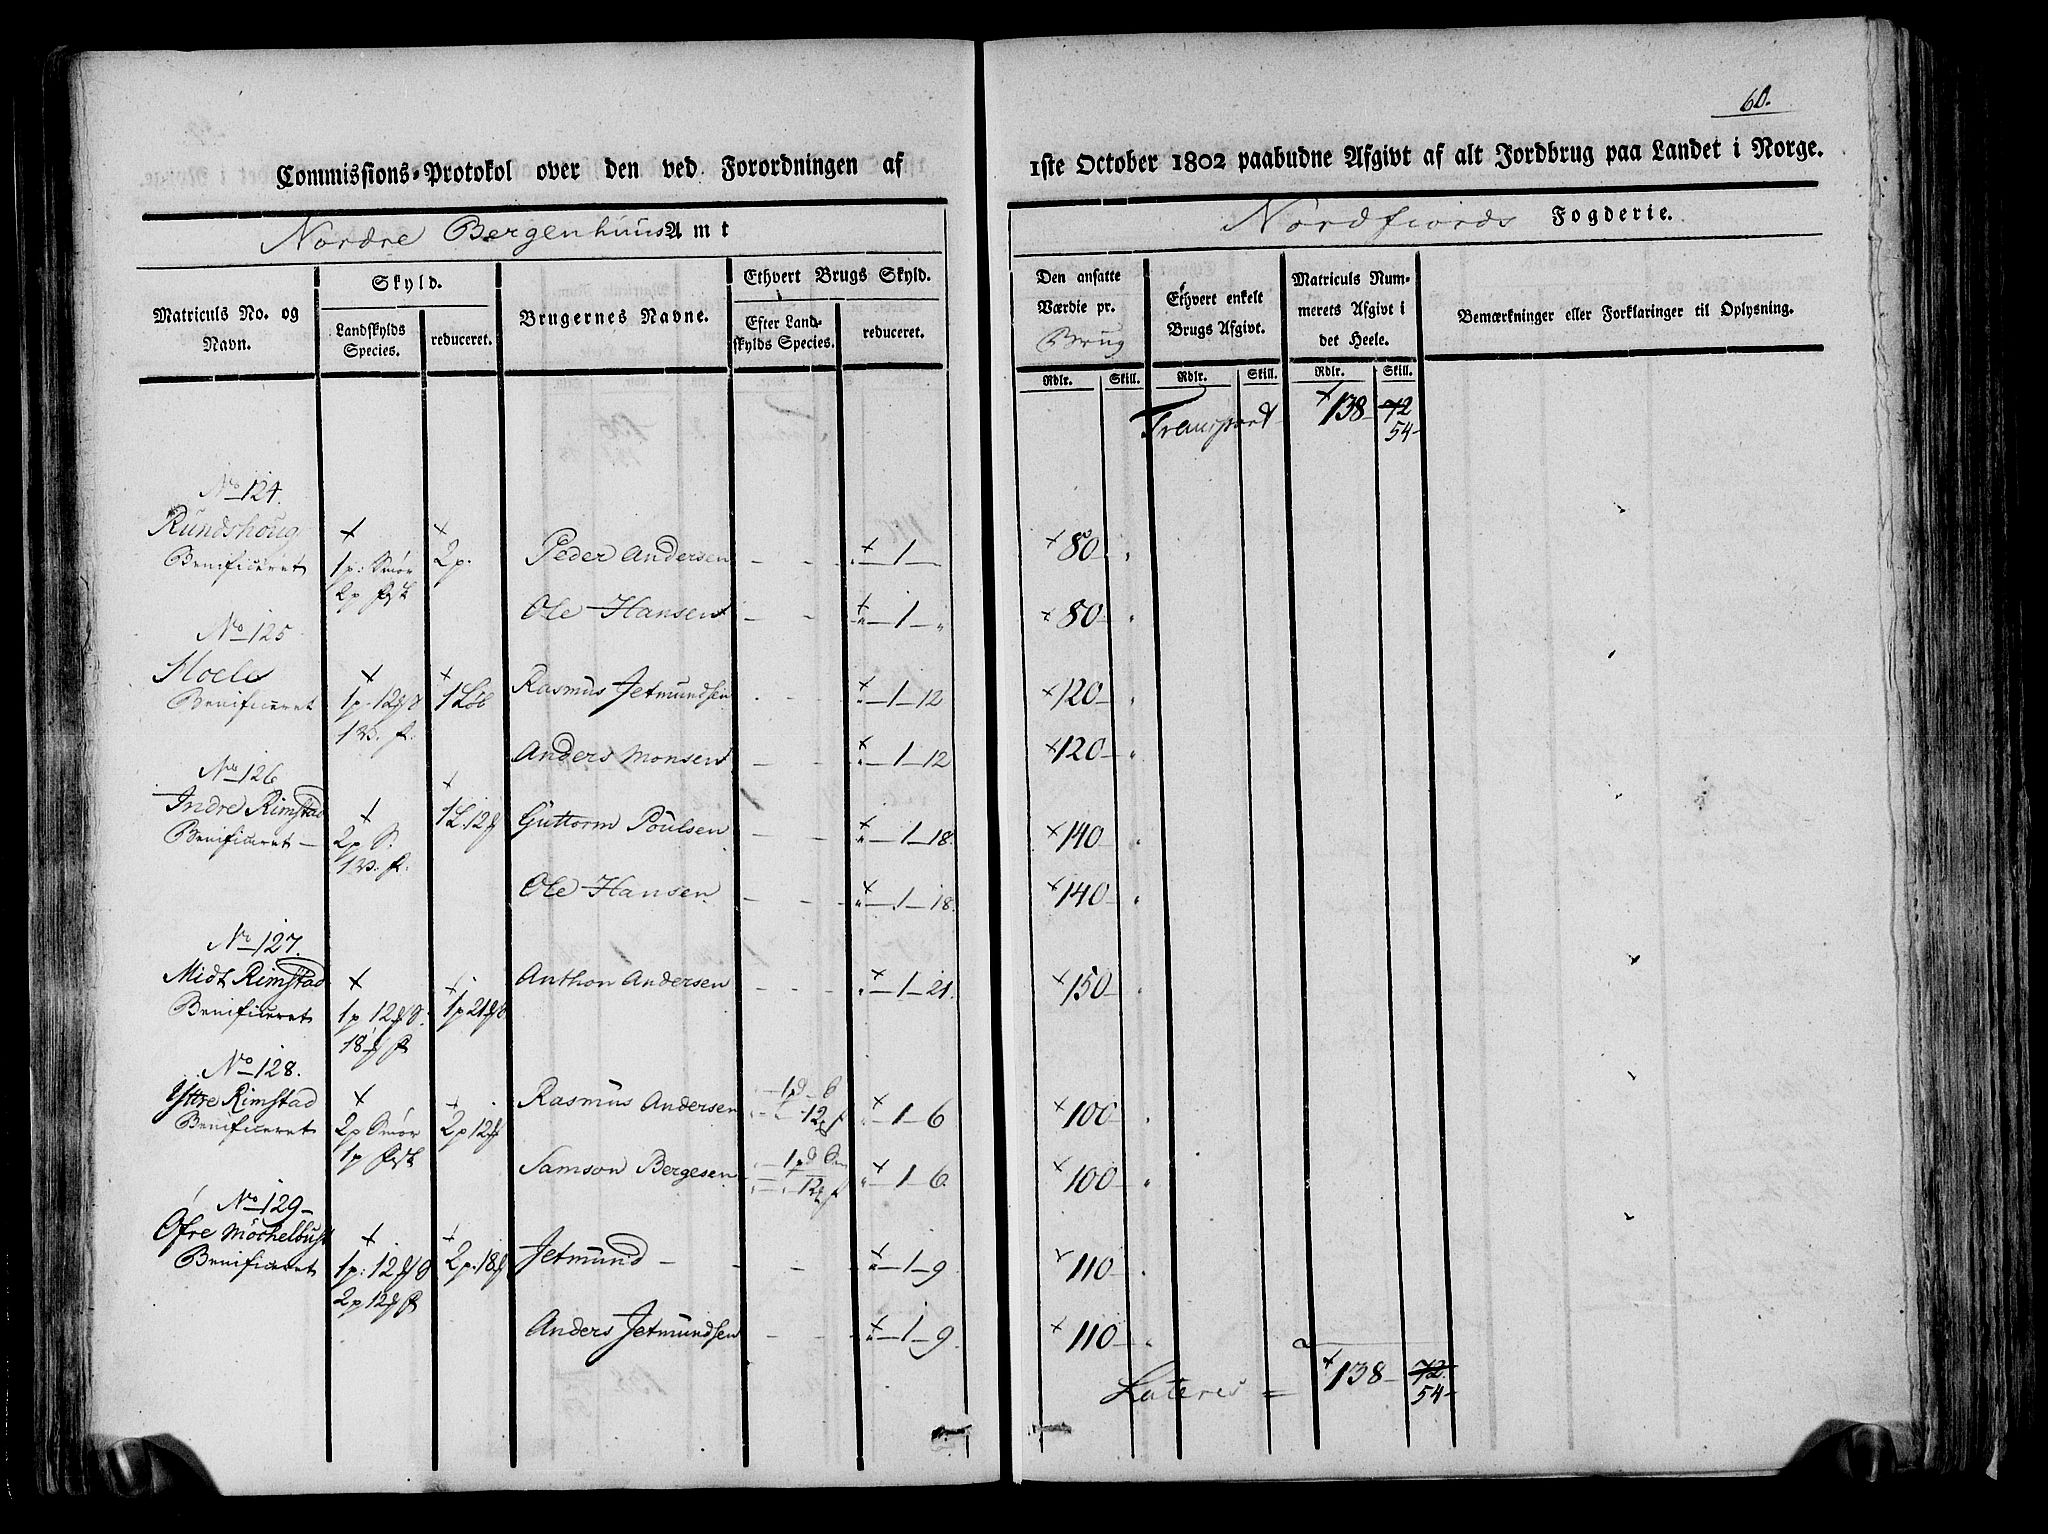 60.
Commissions-Protokol over den ved Forordningen af
1ste October 1802 paabudne Afgivt af alt Jordbrug paa Landet i Norge.
Nordre Bergenhuus Amt
Nordfiords Fogderie.
Matriculs No. og Navn.
Skyld.
Landskylds Species.
reduceret.
Brugernes Navne.
Ethvert Brugs Skyld.
Efter Landskylds Species.
reduceret.
Den ansatte Værdie pr. Brug
Ethvert enkelt Brugs Afgivt.
Matriculs Nummerets Afgivt i det Heele.
Bemærkninger eller Forklaringer til Oplysning.
Rdlr. Skill. Rdlr. Skill. Rdlr. Skill.
Transport 138 72
54
No 124.
Rundshoug
Benificeret 1p: Smør 2p. Peder Andersen 1 80
2p fisk
Ole Hansen 1 80
No 125
Moele
Benificeret 1p. 12 1 Løb Rasmus Jetmundsen 1 12 120
Anders Monsen 1 12 120
No 126
Indre Rimstad
Benificeret 2p S. 1 L. 12 Guttorm Poulsen 1 18. 140
Ole Hansen 1 18. 140
No 127.
Midt Rimstad
Benificeret 1p 12 S. 1p 21 Anthon Andersen 1 21. 150
18
No 128.
Yttre Rimstad
Benificeret 2p Smør 2p 12 Rasmus Andersen 1 12 1 6 100
1p fisk
Samson Bergesen 1 12 1 6 100
No 129
Øfre Mochelbust
Benificeret 1p: 12 2p. 18 Jetmund 1 9 110
2p 12
Anders Jetmundsen 1 9 110
Lateres = 138 72.
54